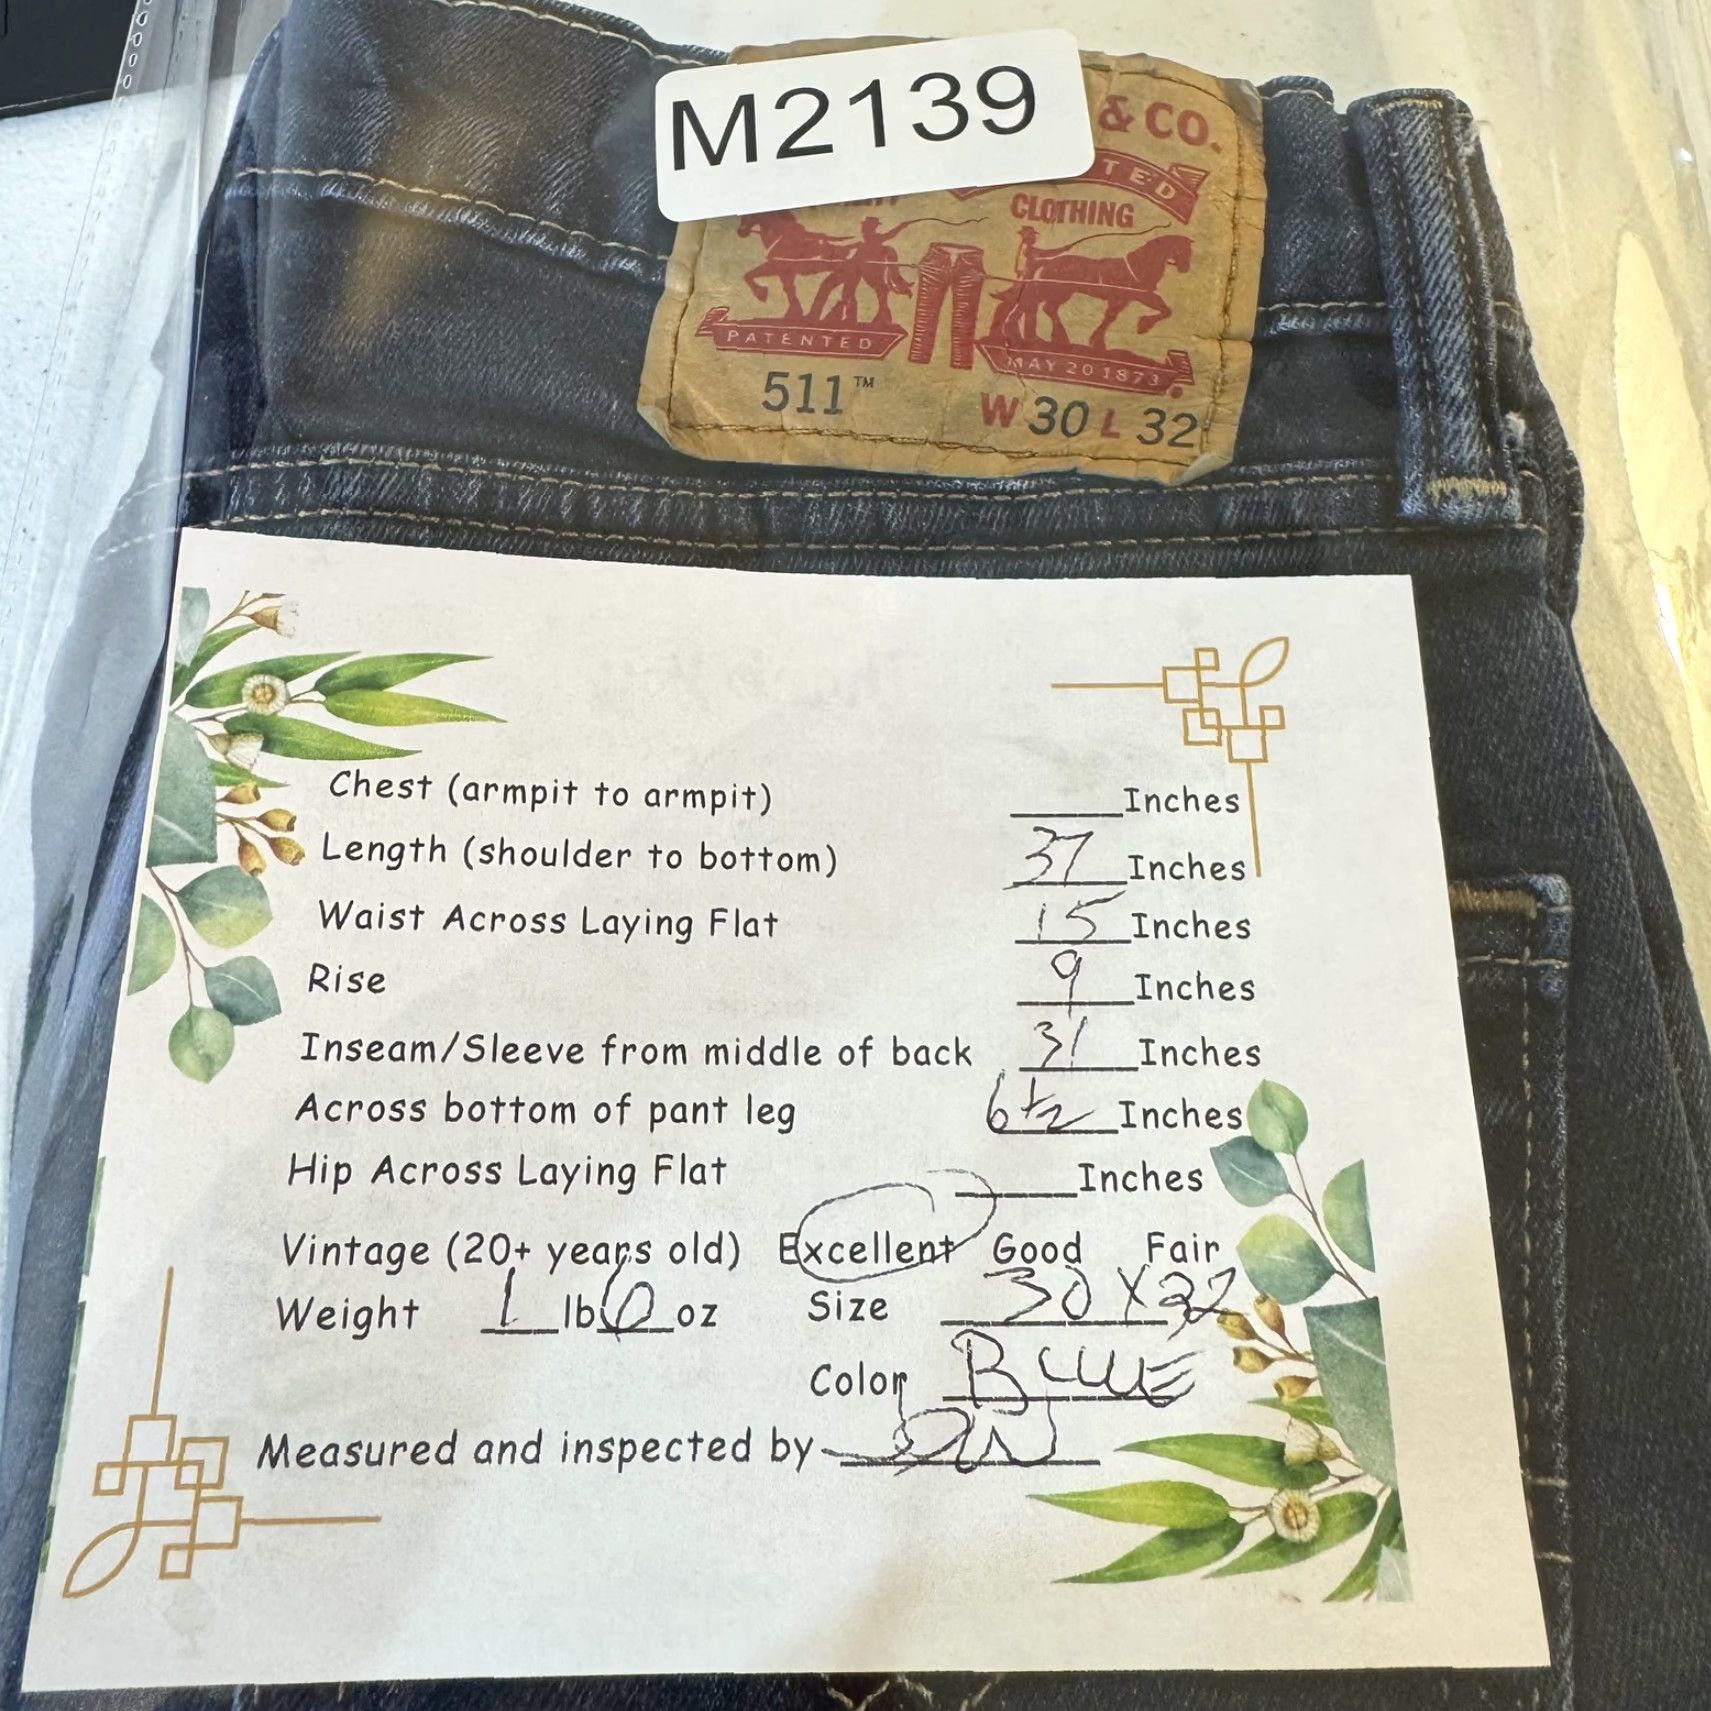 M2139
& CO.
TED
CLOTHING
PATENTED
MAY 20 1873
511™ W 30 L 32
Chest (armpit to armpit) ____Inches
Length (shoulder to bottom) 37 Inches
Waist Across Laying Flat 15 Inches
Rise 9 Inches
Inseam/Sleeve from middle of back 31 Inches
Across bottom of pant leg 6 1/2 Inches
Hip Across Laying Flat ____Inches
Vintage (20+ years old) Excellent Good Fair
Weight 1 lb 6 oz Size 30 X 32
Color BLUE
Measured and inspected by